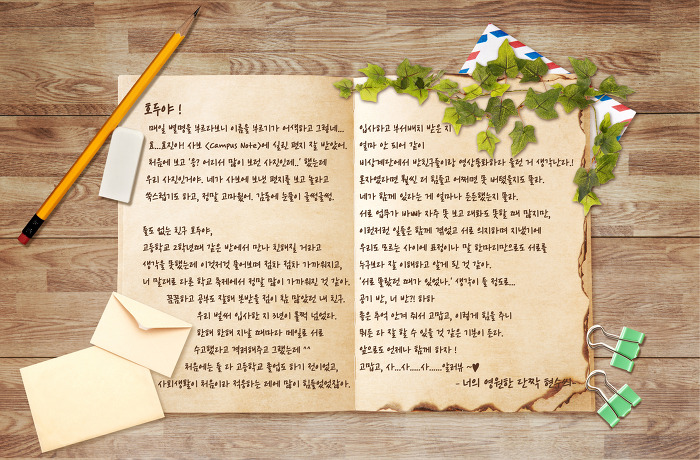 호두야 !
매일 별명을 부르다보니 이름을 부르기가 어색하고 그렇네...
효...효진아! 사보 <Campus Note>에 실린 편지 잘 받았어.
처음에 보고 '응? 어디서 많이 보던 사진인데..' 했는데
우리 사진인거야. 네가 사보에 보낸 편지를 보고 놀라고
쑥스럽기도 하고, 정말 고마웠어. 감동에 눈물이 글썽글썽.
둘도 없는 친구 호두야,
고등학교 2학년때 같은 반에서 만나 친해질 거라고
생각을 못했는데 이것저것 물어보며 점차 점차 가까워지고,
너 말대로 다른 학교 축제에서 정말 많이 가까워진 것 같아.
꼼꼼하고 공부도 잘해 본받을 점이 참 많았던 내 친구.
우리 벌써 입사한 지 3년이 훌쩍 넘었다.
한해 한해 지날 때마다 메일로 서로
수고했다고 격려해주고 그랬는데 ^^
처음에는 둘 다 고등학교 졸업도 하기 전이었고,
사회생활이 처음이라 적응하는 데에 많이 힘들었었잖아.
입사하고 부서배치 받은 지
얼마 안 되어 같이
비상계단에서 반친구들이랑 영상통화하라 들떴던 거 생각난다.!
혼자였더라면 훨씬 더 힘들고 어쩌면 못 버텼을지도 몰라.
네가 함께 있다는 게 얼마나 든든했는지 몰라.
서로 업무가 바빠 자주 못 보고 대화도 못할 때 많지만,
이런저런 일들은 함께 겪었고 서로 의지하며 지냈기에
우리도 모르는 사이에 표정이나 말 한마리만으로도 서로를
누구보다 잘 이해하고 알게 된 것 같아.
'서로 몰랐던 때가 있었나.' 생각이 들 정도로...
공기 반, 너 반?! 하하
좋은 추억 안겨 줘서 고맙고, 이렇게 힘을 주니
뭐든 다 잘 할 수 있을 것 같은 기분이 든다.
앞으로도 언제나 함께 하자 !
고맙고, 사...사....사......알러뷰 ~♥
- 너의 영원한 단짝 현수의-